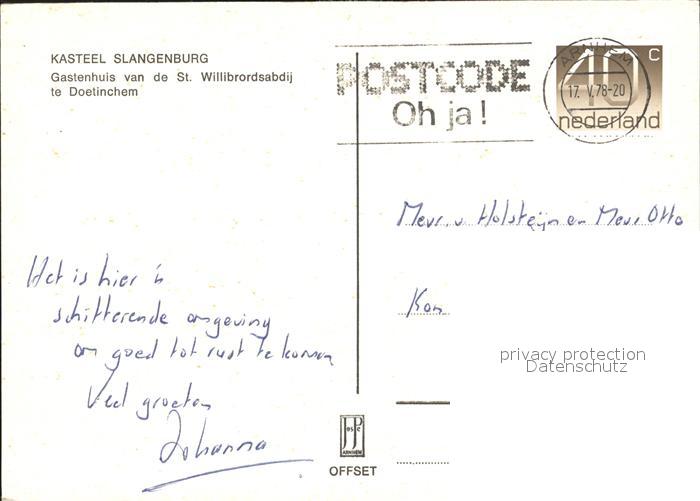 KASTEEL SLANGENBURG
Gastenhuis van de St. Willibrordsabdij
te Doetinchem
POSTCODE
Oh ja!
ARNHEM
17. V.78-20
40 c
nederland
Mevr. v. Holsteijn en Mevr Otto
Kon
Het is hier 'n
schitterende omgeving
om goed tot rust te komen
Veel groeten
Johanna
privacy protection
Datenschutz
JosPe
ARNHEM
OFFSET